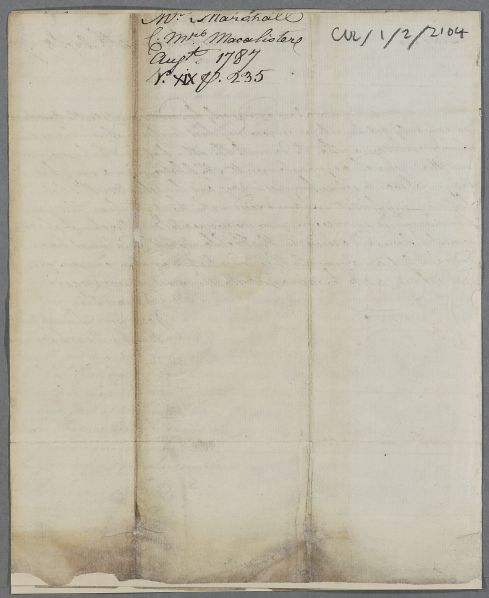 Mr. Marshall
C. Mrs. Macalisters
Augt. 1787
No. XIX p. 235
CUL/1/2/2104